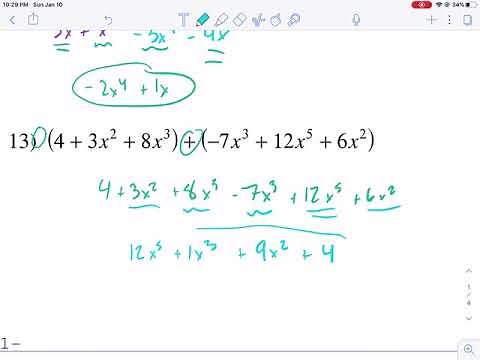 10:29 PM Sun Jan 10
34%
5x + x - 5x² - 4x
- 2x⁴ + 1x
13) (4 + 3x² + 8x³) + (−7x³ + 12x⁵ + 6x²)
4 + 3x² + 8x³ - 7x³ + 12x⁵ + 6x²
12x⁵ + 1x³ + 9x² + 4
1-
1
4